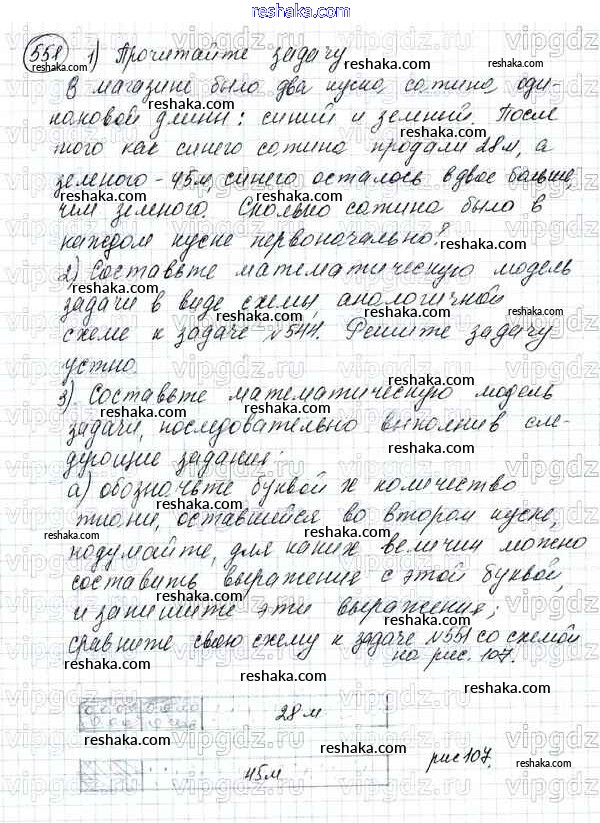 reshaka.com
551 1) Прочитайте задачу
В магазине было два куска сатина оди-
наковой длины: синий и зелёный. После
того как синего сатина продали 28 м, а
зеленого - 45 м, синего осталось вдвое больше,
чем зеленого. Сколько сатина было в
каждом куске первоначально?
2) Составьте математическую модель
задачи в виде схемы, аналогичной
схеме к задаче №544. Решите задачу
устно.
3) Составьте математическую модель
задачи, последовательно выполнив сле-
дующие задания:
а) обозначьте буквой x количество
ткани, оставшейся во втором куске,
подумайте, для каких величин можно
составить выражения с этой буквой,
и запишите эти выражения;
сравните свою схему к задаче №551 со схемой
на рис. 107.
28 м
45м
рис 107.